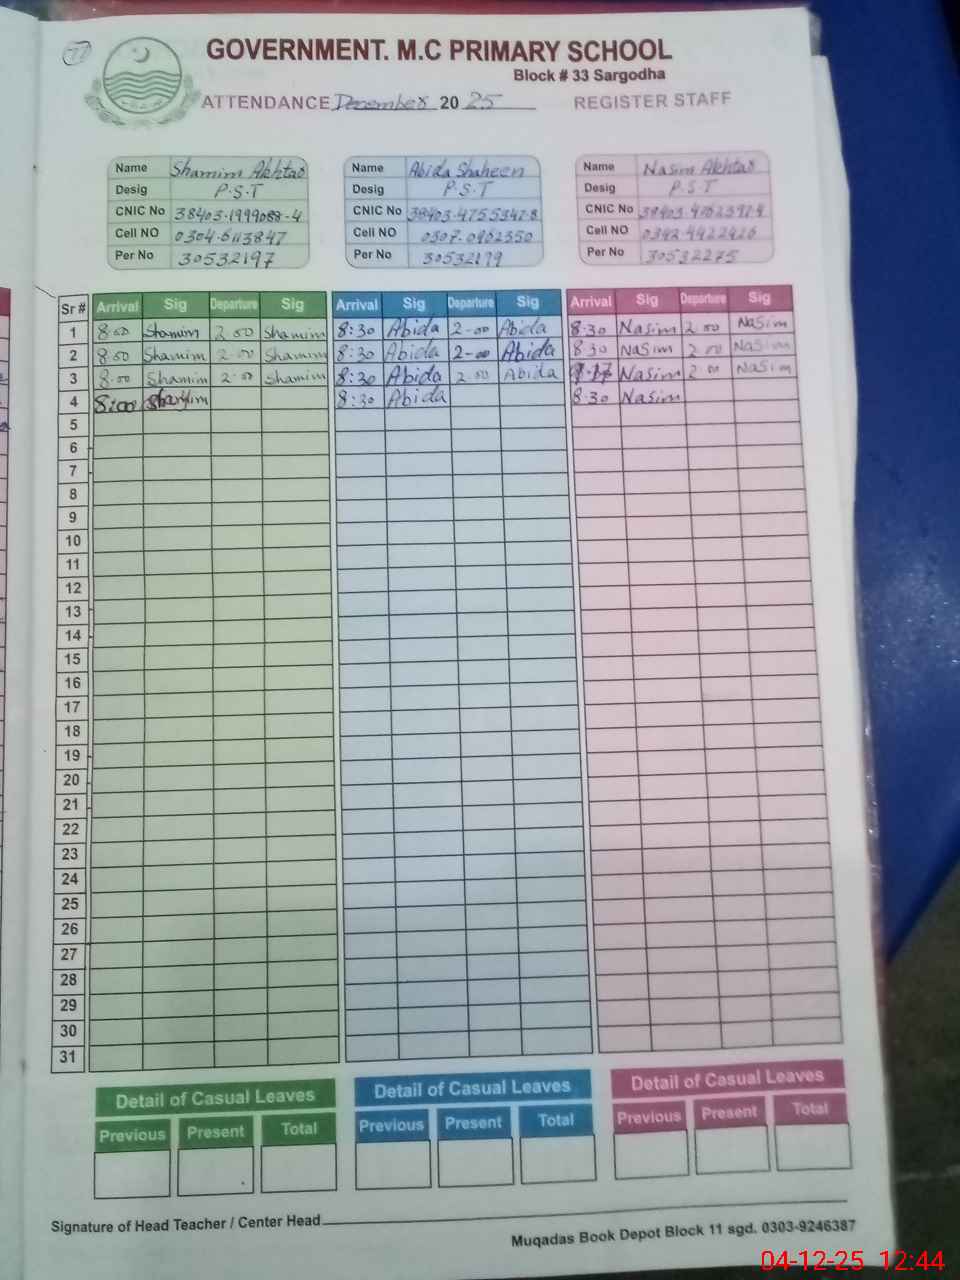 77
GOVERNMENT. M.C PRIMARY SCHOOL
Block # 33 Sargodha
ATTENDANCE December 20 25 REGISTER STAFF
Name Shamim Akhtar
Desig P.S.T
CNIC No 38403-1999088-4
Cell NO 0304-6113847
Per No 30532197
Name Abida Shaheen
Desig P.S.T
CNIC No 38403-4755342-8
Cell NO 0307-0962350
Per No 30532179
Name Nasim Akhtar
Desig P.S.T
CNIC No
Cell NO 0342-4422426
Per No 30532275
Sr # Arrival Sig Departure Sig Arrival Sig Departure Sig Arrival Sig Departure Sig
1 8:00 Shamim 2:00 Shamim 8:30 Abida 2-00 Abida 8:30 Nasim 2:00 Nasim
2 8:00 Shamim 2:00 Shamim 8:30 Abida 2-00 Abida 8:30 Nasim 2:00 Nasim
3 8:00 Shamim 2:00 Shamim 8:30 Abida 2:00 Abida Nasim 2:00 Nasim
4 8:00 Shamim 8:30 Abida 8:30 Nasim
5
6
7
8
9
10
11
12
13
14
15
16
17
18
19
20
21
22
23
24
25
26
27
28
29
30
31
Detail of Casual Leaves Detail of Casual Leaves Detail of Casual Leaves
Previous Present Total Previous Present Total Previous Present Total
Signature of Head Teacher / Center Head
Muqadas Book Depot Block 11 sgd. 0303-9246387
04-12-25 12:44